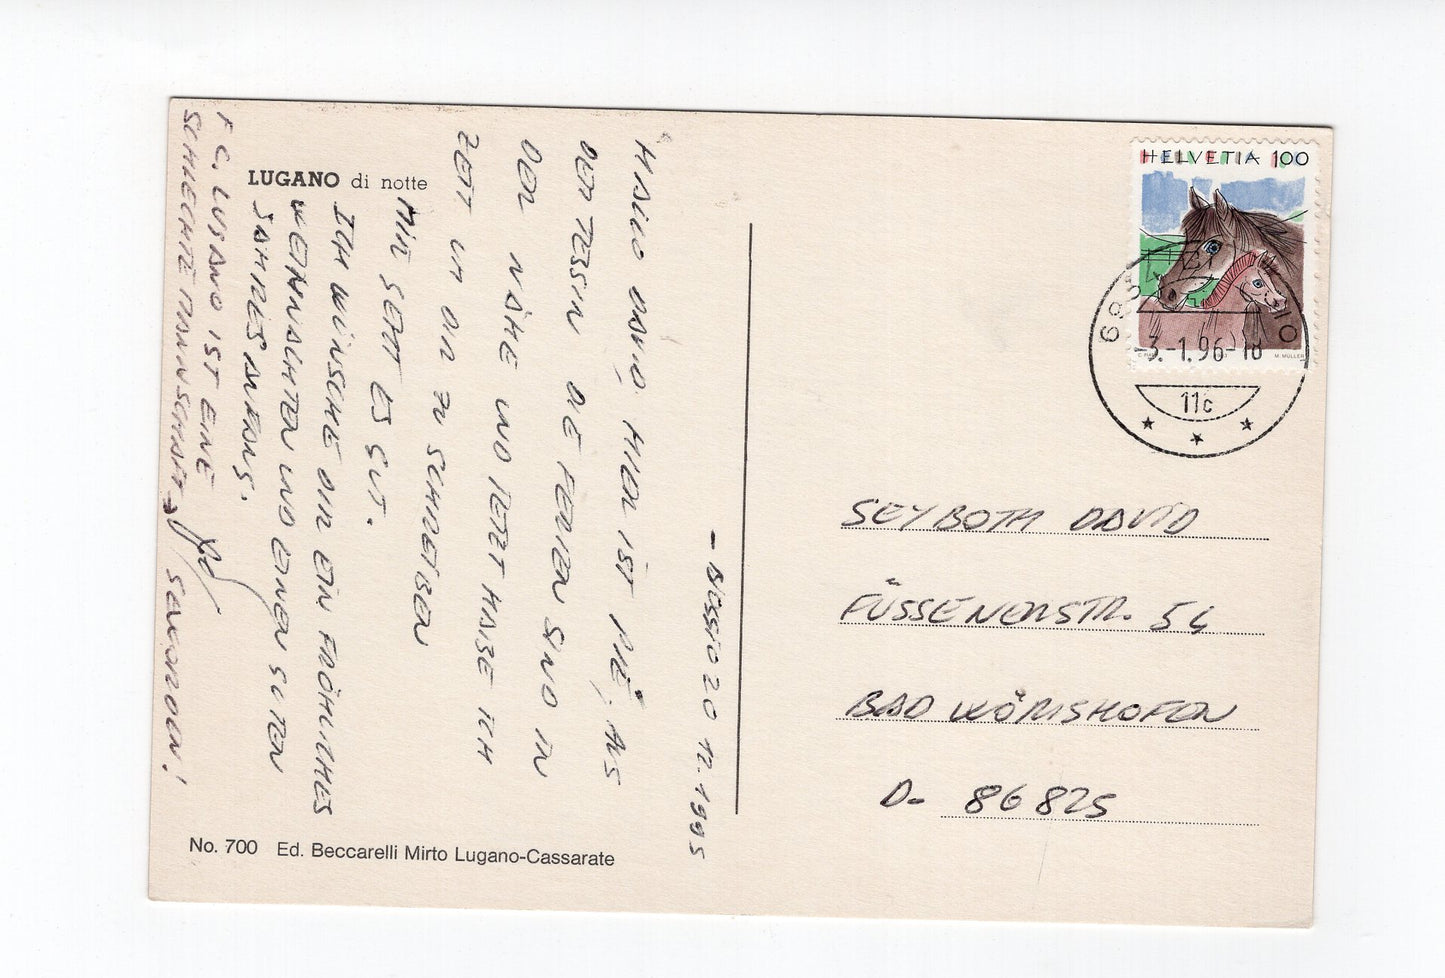 LUGANO di notte
- BISSIO 20.12.1995
HALLO DAVID. HIER IST PIÉ, AUS
DEM TESSIN. DIE FERIEN SIND IN
DER NÄHE UND JETZT HABE ICH
ZEIT UM DIR ZU SCHREIBEN
MIR GEHT ES GUT.
ICH WÜNSCHE DIR EIN FRÖHLICHES
WEIHNACHTEN UND EINEN GUTEN
JAHRES ANFANG.
F.C. LUGANO IST EINE
SCHLECHTE MANNSCHAFT GEWORDEN!
No. 700 Ed. Beccarelli Mirto Lugano-Cassarate
HELVETIA 100
M. MÜLLER
-3.-1.96-18
11c
SEYBOTH DAVID
FÜSSENERSTR. 54
BAD WÖRISHOFEN
D- 86825